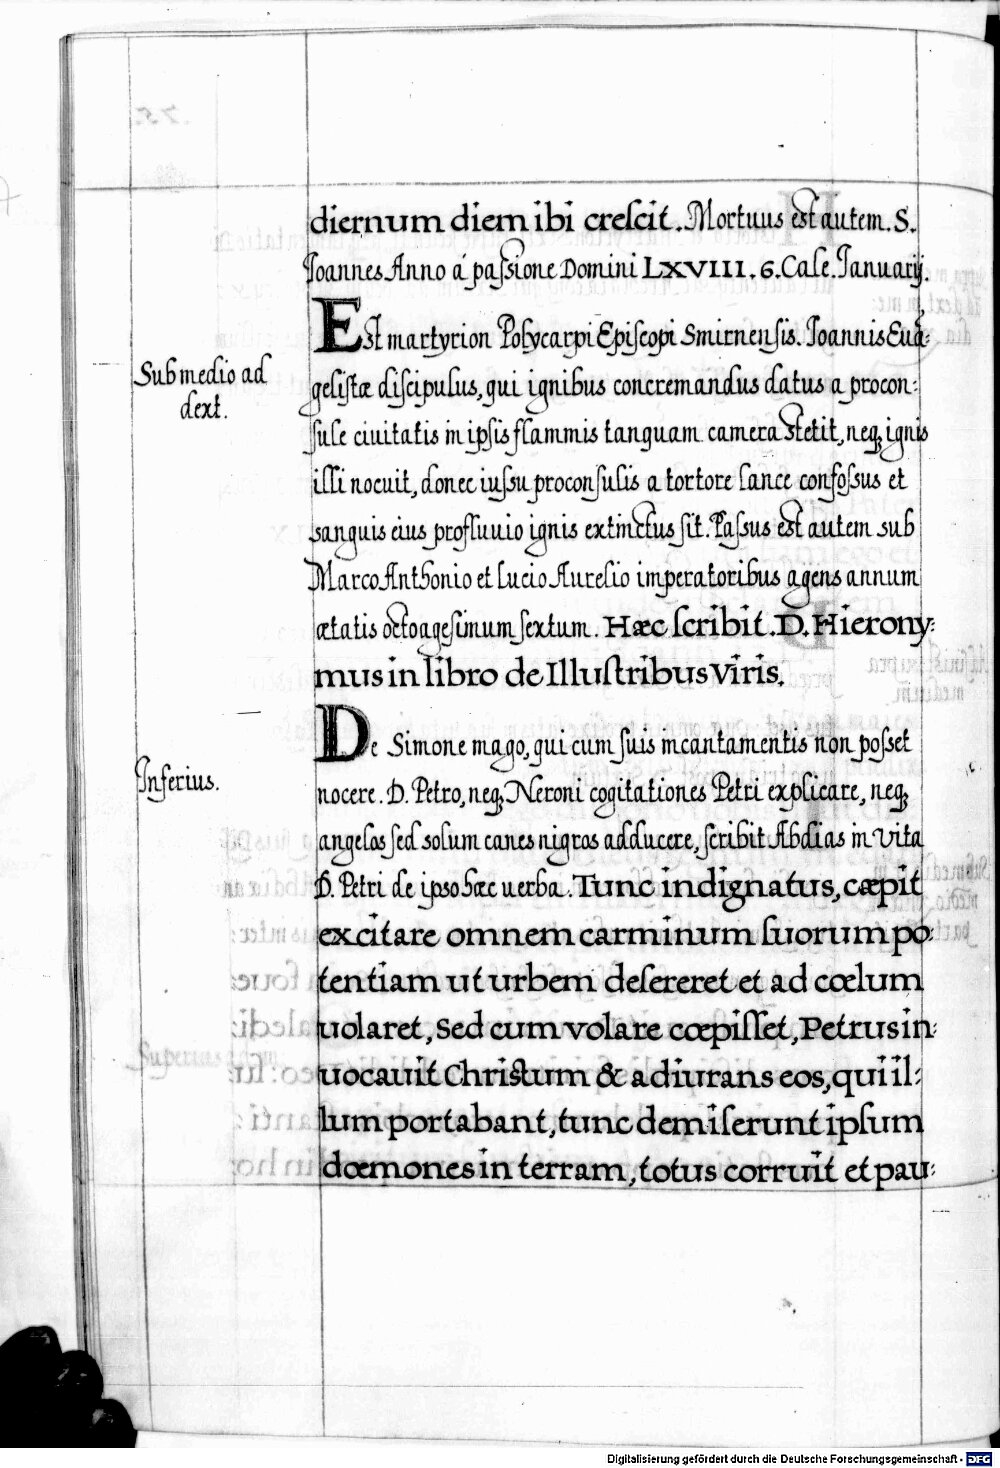 diernum diem ibi crescit. Mortuus est autem. S.
Joannes Anno á passione Domini LXVIII. 6. Cale. Januarij.
Est martyrion Polycarpi Episcopi Smirnensis. Joannis Euā-
Sub medio ad
dext.
gelistæ discipulus, qui ignibus concremandus datus a procon-
sule ciuitatis in ipsis flammis tanquam camera stetit, neq; ignis
illi nocuit, donec iussu proconsulis a tortore lance confossus et
sanguis eius profluuio ignis extinctus sit. Passus est autem sub
Marco Anthonio et Lucio Aurelio imperatoribus agens annum
ætatis octoagesimum sextum. Hæc scribit. D. Hierony-
mus in libro de Illustribus Viris.
De Simone mago, qui cum suis incantamentis non posset
Inferius.
nocere. D. Petro, neq; Neroni cogitationes Petri explicare, neq;
angelos sed solum canes nigros adducere, scribit Abdias in vita
D. Petri de ipso hæc uerba. Tunc indignatus, cæpit
excitare omnem carminum suorum po-
tentiam ut urbem desereret et ad cœlum
uolaret, Sed cum volare cœpisset, Petrus in-
uocauit Christum & adiurans eos, qui il-
lum portabant, tunc demiserunt ipsum
dœmones in terram, totus corruit et pau-
Digitalisierung gefördert durch die Deutsche Forschungsgemeinschaft - DFG